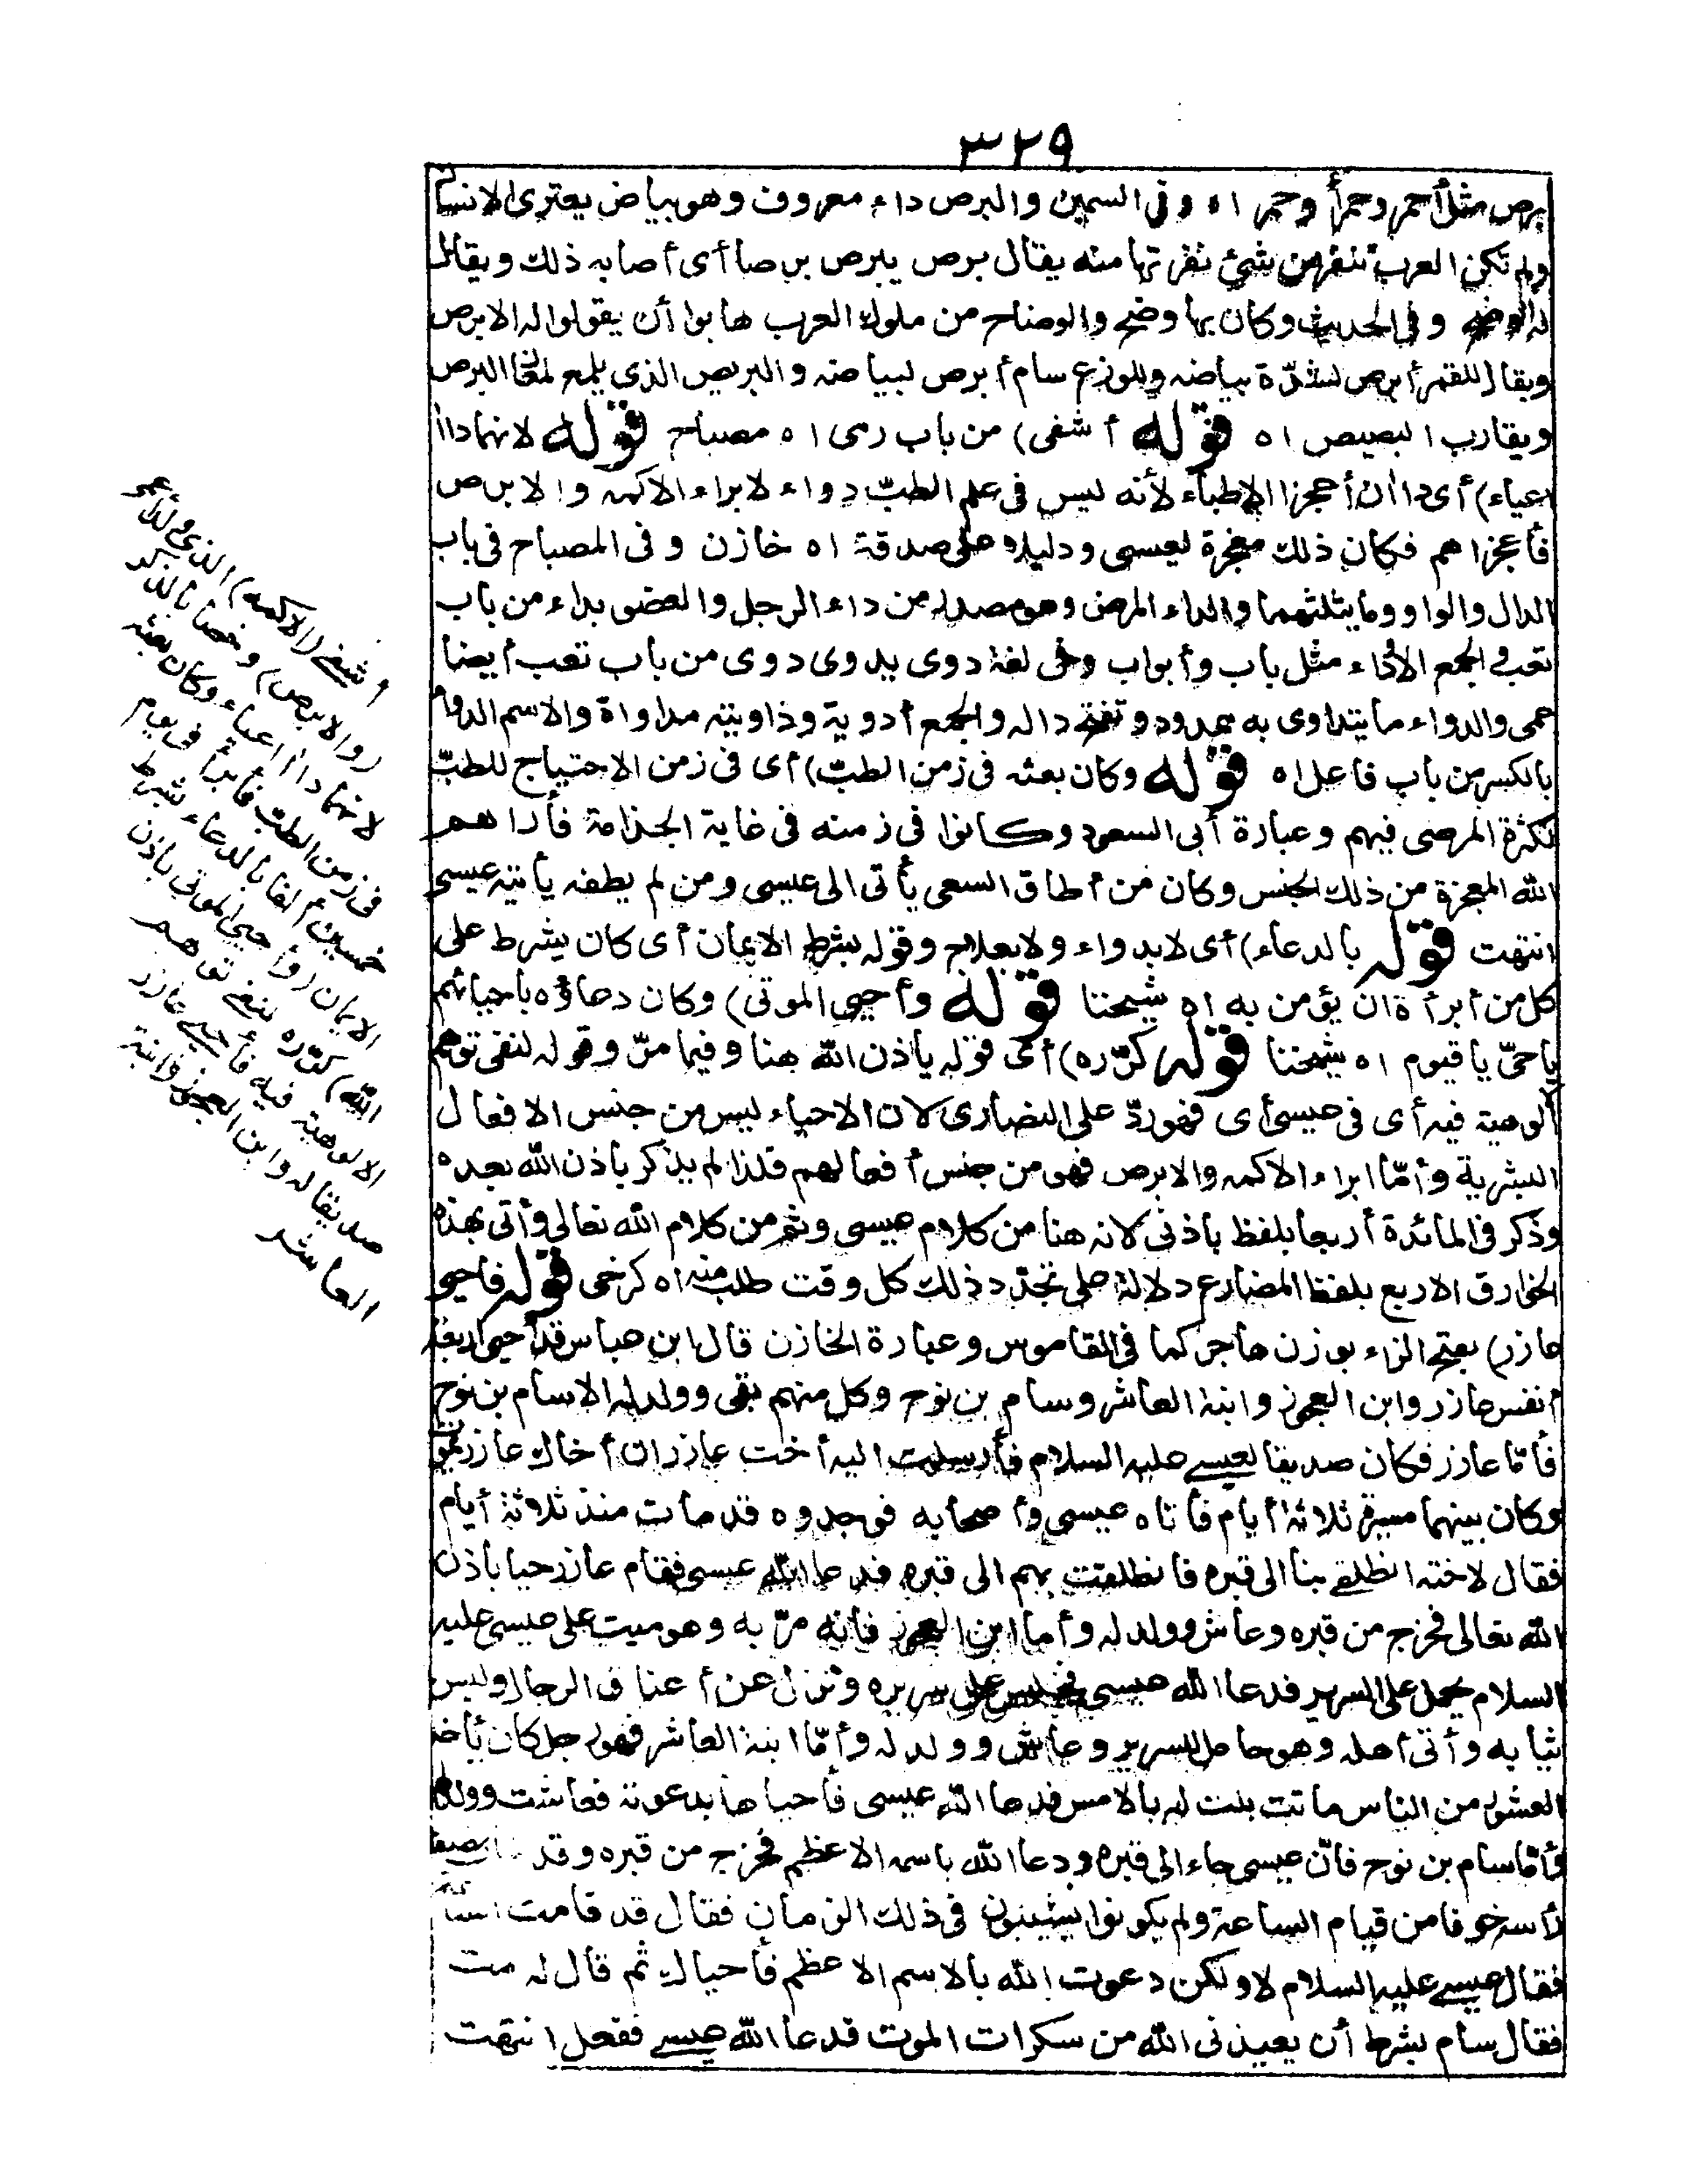 ٣٢٩
برص مثل أحمر وحمرأ وحمر اه وفى السمين والبرص داء معروف وهو بياض يعترى الانسان
ولم تكن العرب تنفر من شئ نفرتها منه يقال برص يبرص برصا أى أصابه ذلك ويقال
له الوضح وفى الحديث وكان بها وضح والوضاح من ملوك العرب هابوا أن يقولوا له الابرص
ويقال للقمر أبرص لشدّة بياضه وللوزغ سام أبرص لبياضه والبريص الذى يلمع لمعان البرص
ويقارب البصيص اه قوله أشفى) من باب رمى اه مصباح قوله لانهما داآ
اعياء) أى داآن أعجزا الاطباء لأنه ليس فى علم الطبّ دواء لابراء الاكمه والابرص
فأعجزاهم فكان ذلك معجزة لعيسى ودليلا على صدقة اه خازن وفى المصباح فى باب
الدال والواو وما يثلثهما والداء المرض وهو مصدر من داء الرجل والعضو يداء من باب
تعب والجمع الادواء مثل باب وأبواب وفى لغة دوى يدوى دوى من باب تعب أيضا
عمى والدواء ما يتداوى به ممدود وتفتح داله والجمع أدوية وداويته مداواة والاسم الدواء
بالكسر من باب قاعل اه قوله وكان بعثه فى زمن الطبّ) أى فى زمن الاحتياج للطبّ
لكثرة المرضى فيهم وعبارة أبى السعود وكانوا فى زمنه فى غاية الحذاقة فأراهم
الله المعجزة من ذلك الجنس وكان من أطاق السعى يأتى الى عيسى ومن لم يطقه يأتيه عيسى
انتهت قوله بالدعاء) أى لابدواء ولا بعلاج وقوله بشرط الايمان أى كان يشرط على
كل من أبرأه ان يؤمن به اه شيخنا قوله وأحيى الموتى) وكان دعاؤه باحيائهم
ياحىّ ياقيوم اه شيخنا قوله كرّره) أى قوله باذن الله هنا وفيما مرّ وقوله لنفى توهم
ألوهية فيه أى فى عيسى أى فهو ردّ على النصارى لان الاحياء ليس من جنس الافعال
البشرية وأمّا ابراء الاكمه والابرص فهو من جنس أفعالهم فلذا لم يذكر باذن الله بعده
وذكر فى المائدة أربعا بلفظ باذنى لانه هنا من كلام عيسى وثم من كلام الله تعالى وأتى بهذه
الخوارق الاربع بلفظ المضارع دلالة على تجدّد ذلك كل وقت طلب منه اه كرخى قوله فاحيى
عازر) بفتح الزاء بوزن هاجر كما فى القاموس وعبارة الخازن قال ابن عباس قد أحيى اربعة
أنفس عازر وابن العجوز وابنة العاشر وسام بن نوح وكل منهم بقى وولد له الاسام بن نوح
فأمّا عازر فكان صديقا لعيسى عليه السلام فأرسلت اليه أخت عازر ان أخاك عازر يموت
وكان بينهما مسيرة ثلاثة أيام فأتاه عيسى وأصحابه فوجدوه قد مات منذ ثلاثة أيام
فقال لاخته انطلقى بنا الى قبره فانطلقت بهم الى قبره فدعا الله عيسى فقام عازر حيا باذن
الله تعالى فخرج من قبره وعاش وولد له وأما ابن العجوز فانه مرّ به وهو ميت على عيسى عليه
السلام يحمل على السرير فدعا الله عيسى فجلس على سريره ونزل عن أعناق الرجال ولبس
ثيابه وأتى أهله وهو حامل السرير وعاش وولد له وأمّا ابنة العاشر فهو رجل كان يأخذ
العشور من الناس ماتت بنت له بالامس فدعا الله عيسى فأحياها بدعوته فعاشت وولد لها
وأمّا سام بن نوح فانّ عيسى جاء الى قبره ودعا الله باسمه الاعظم فخرج من قبره وقد نصف
رأسه خوفا من قيام الساعة ولم يكونوا يشيبون فى ذلك الزمان فقال قد قامت
فقال عيسى عليه السلام لا ولكن دعوت الله بالاسم الاعظم فأحياك ثم قال له مت
فقال سام بشرط أن يعيذنى الله من سكرات الموت فدعا الله عيسى ففعل انتهت
أشفى (الاكمه) الذى ولد أعمى
(والابرص) وخصا بالذكر
لانهما داآ اعياء وكان بعثه
فى زمن الطب فأبرأ فى يوم
خمسين ألفا بالدعاء بشرط
الايمان (وأحيى الموتى باذن
الله) كرّره لنفى توهم
الالوهية فيه فأحيى عازر
صديقا له وابن العجوز وابنة
العاشر